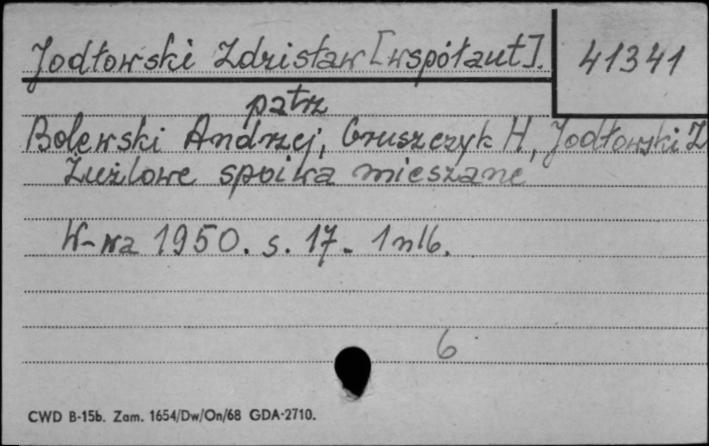 Jodłowski Zdzisław [współaut].
41341
patrz
Bolewski Andrzej, Gruszczyk H, Jodłowski Z
Żużlowe spoiwa mieszane
W-wa 1950. s. 17. 1 nlb.
6
CWD B-15b. Zam. 1654/Dw/On/68 GDA-2710.